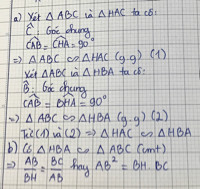 a) Xét △ ABC và △ HAC ta có:
Ĉ: Góc chung
CAB = CHA = 90°
⇒ △ ABC ∽ △ HAC (g.g) (1)
Xét △ ABC và △ HBA ta có:
B̂: Góc chung
CAB = BHA = 90°
⇒ △ ABC ∽ △ HBA (g.g) (2)
Từ (1) và (2) ⇒ △ HAC ∽ △ HBA
b) Có △ HBA ∽ △ ABC (cmt)
⇒ AB/BH = BC/AB hay AB² = BH. BC